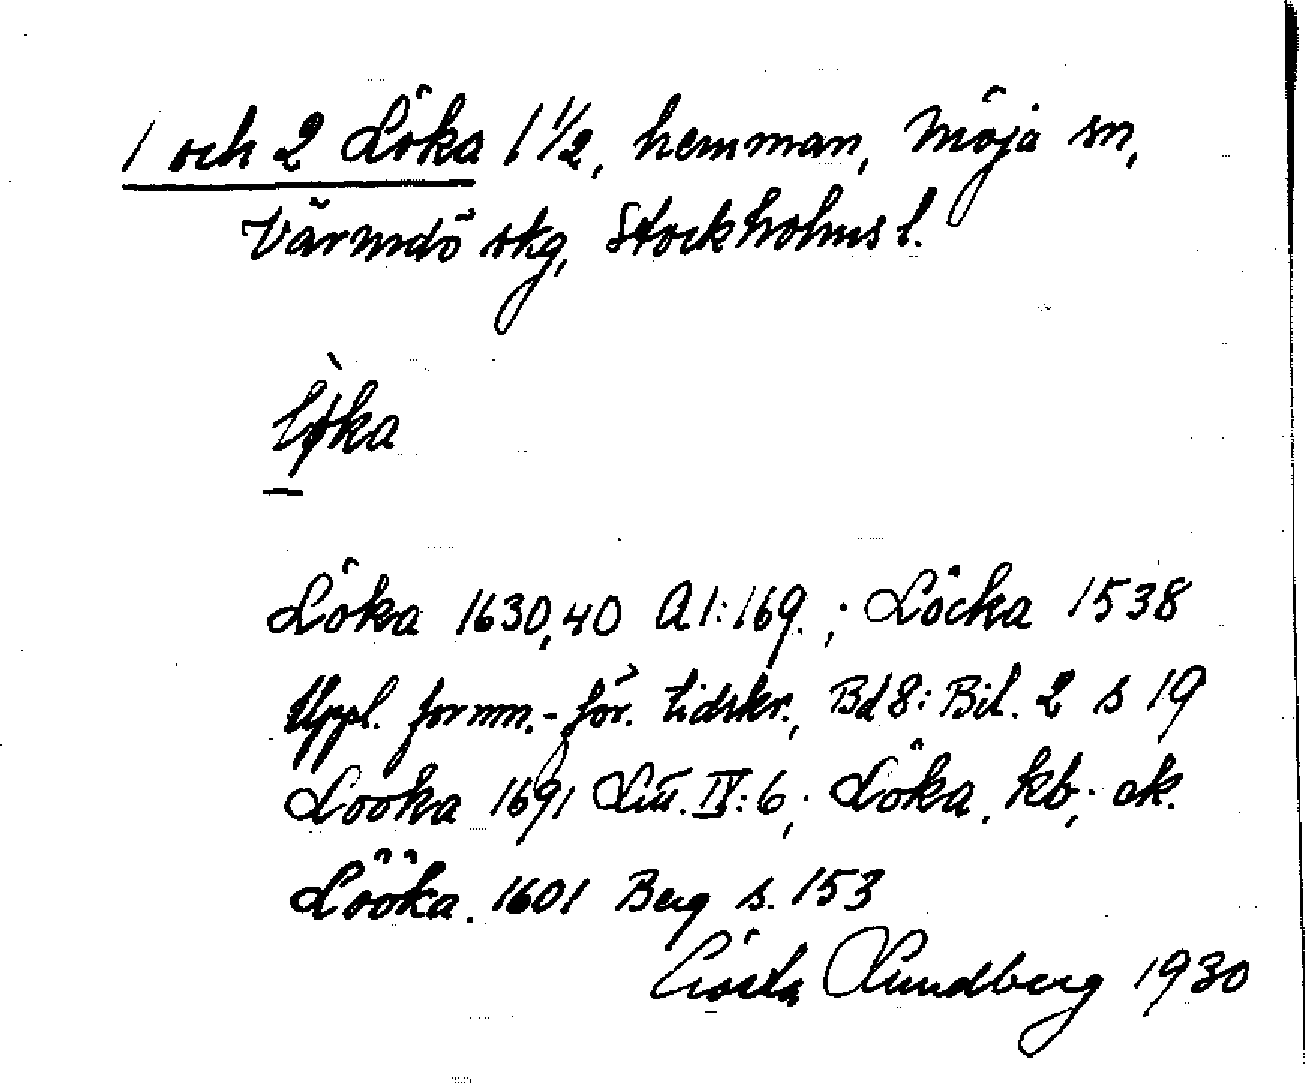 1 och 2 Löka 1 1/2, hemman, Möja sn,
Värmdö skg, Stockholms l.
lø̀ka
Löka 1630,40 A1:169.; Löcka 1538
Uppl. fornm.-för. tidskr., Bd 8: Bil. 2 s 19
Looka 1691 Litt. IV:6,; Löka. kb,; ek.
Lööka. 1601 Berg s. 153
Gösta Lundberg 1930